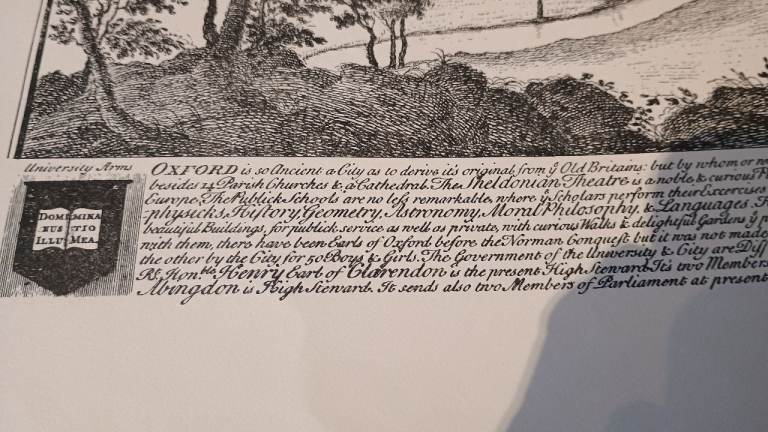 University Arms
DOMI MINA
NUS TIO
ILLU MEA.
OXFORD is so Ancient a City as to derive it's original from ẏ Old Britains: but by whom or
besides 24 Parish Churches & a Cathedral. The Sheldonian Theatre is a noble & curious
Europe. The Publick Schools are no less remarkable, where ẏ Scholars perform their Excercises
-physicks, History, Geometry, Astronomy, Moral Philosophy, & Languages.
beautiful Buildings, for publick service as well as private, with curious Walks & delightful Gardens ẏ
with them, there have been Earls of Oxford before the Norman Conquest but it was not made
the other by the City for 50 Boys & Girls. The Government of the University & City are
Rt. Honble. Henry Earl of Clarendon is the present High Steward. It's two Members
Abingdon is High Steward. It sends also two Members of Parliament at present